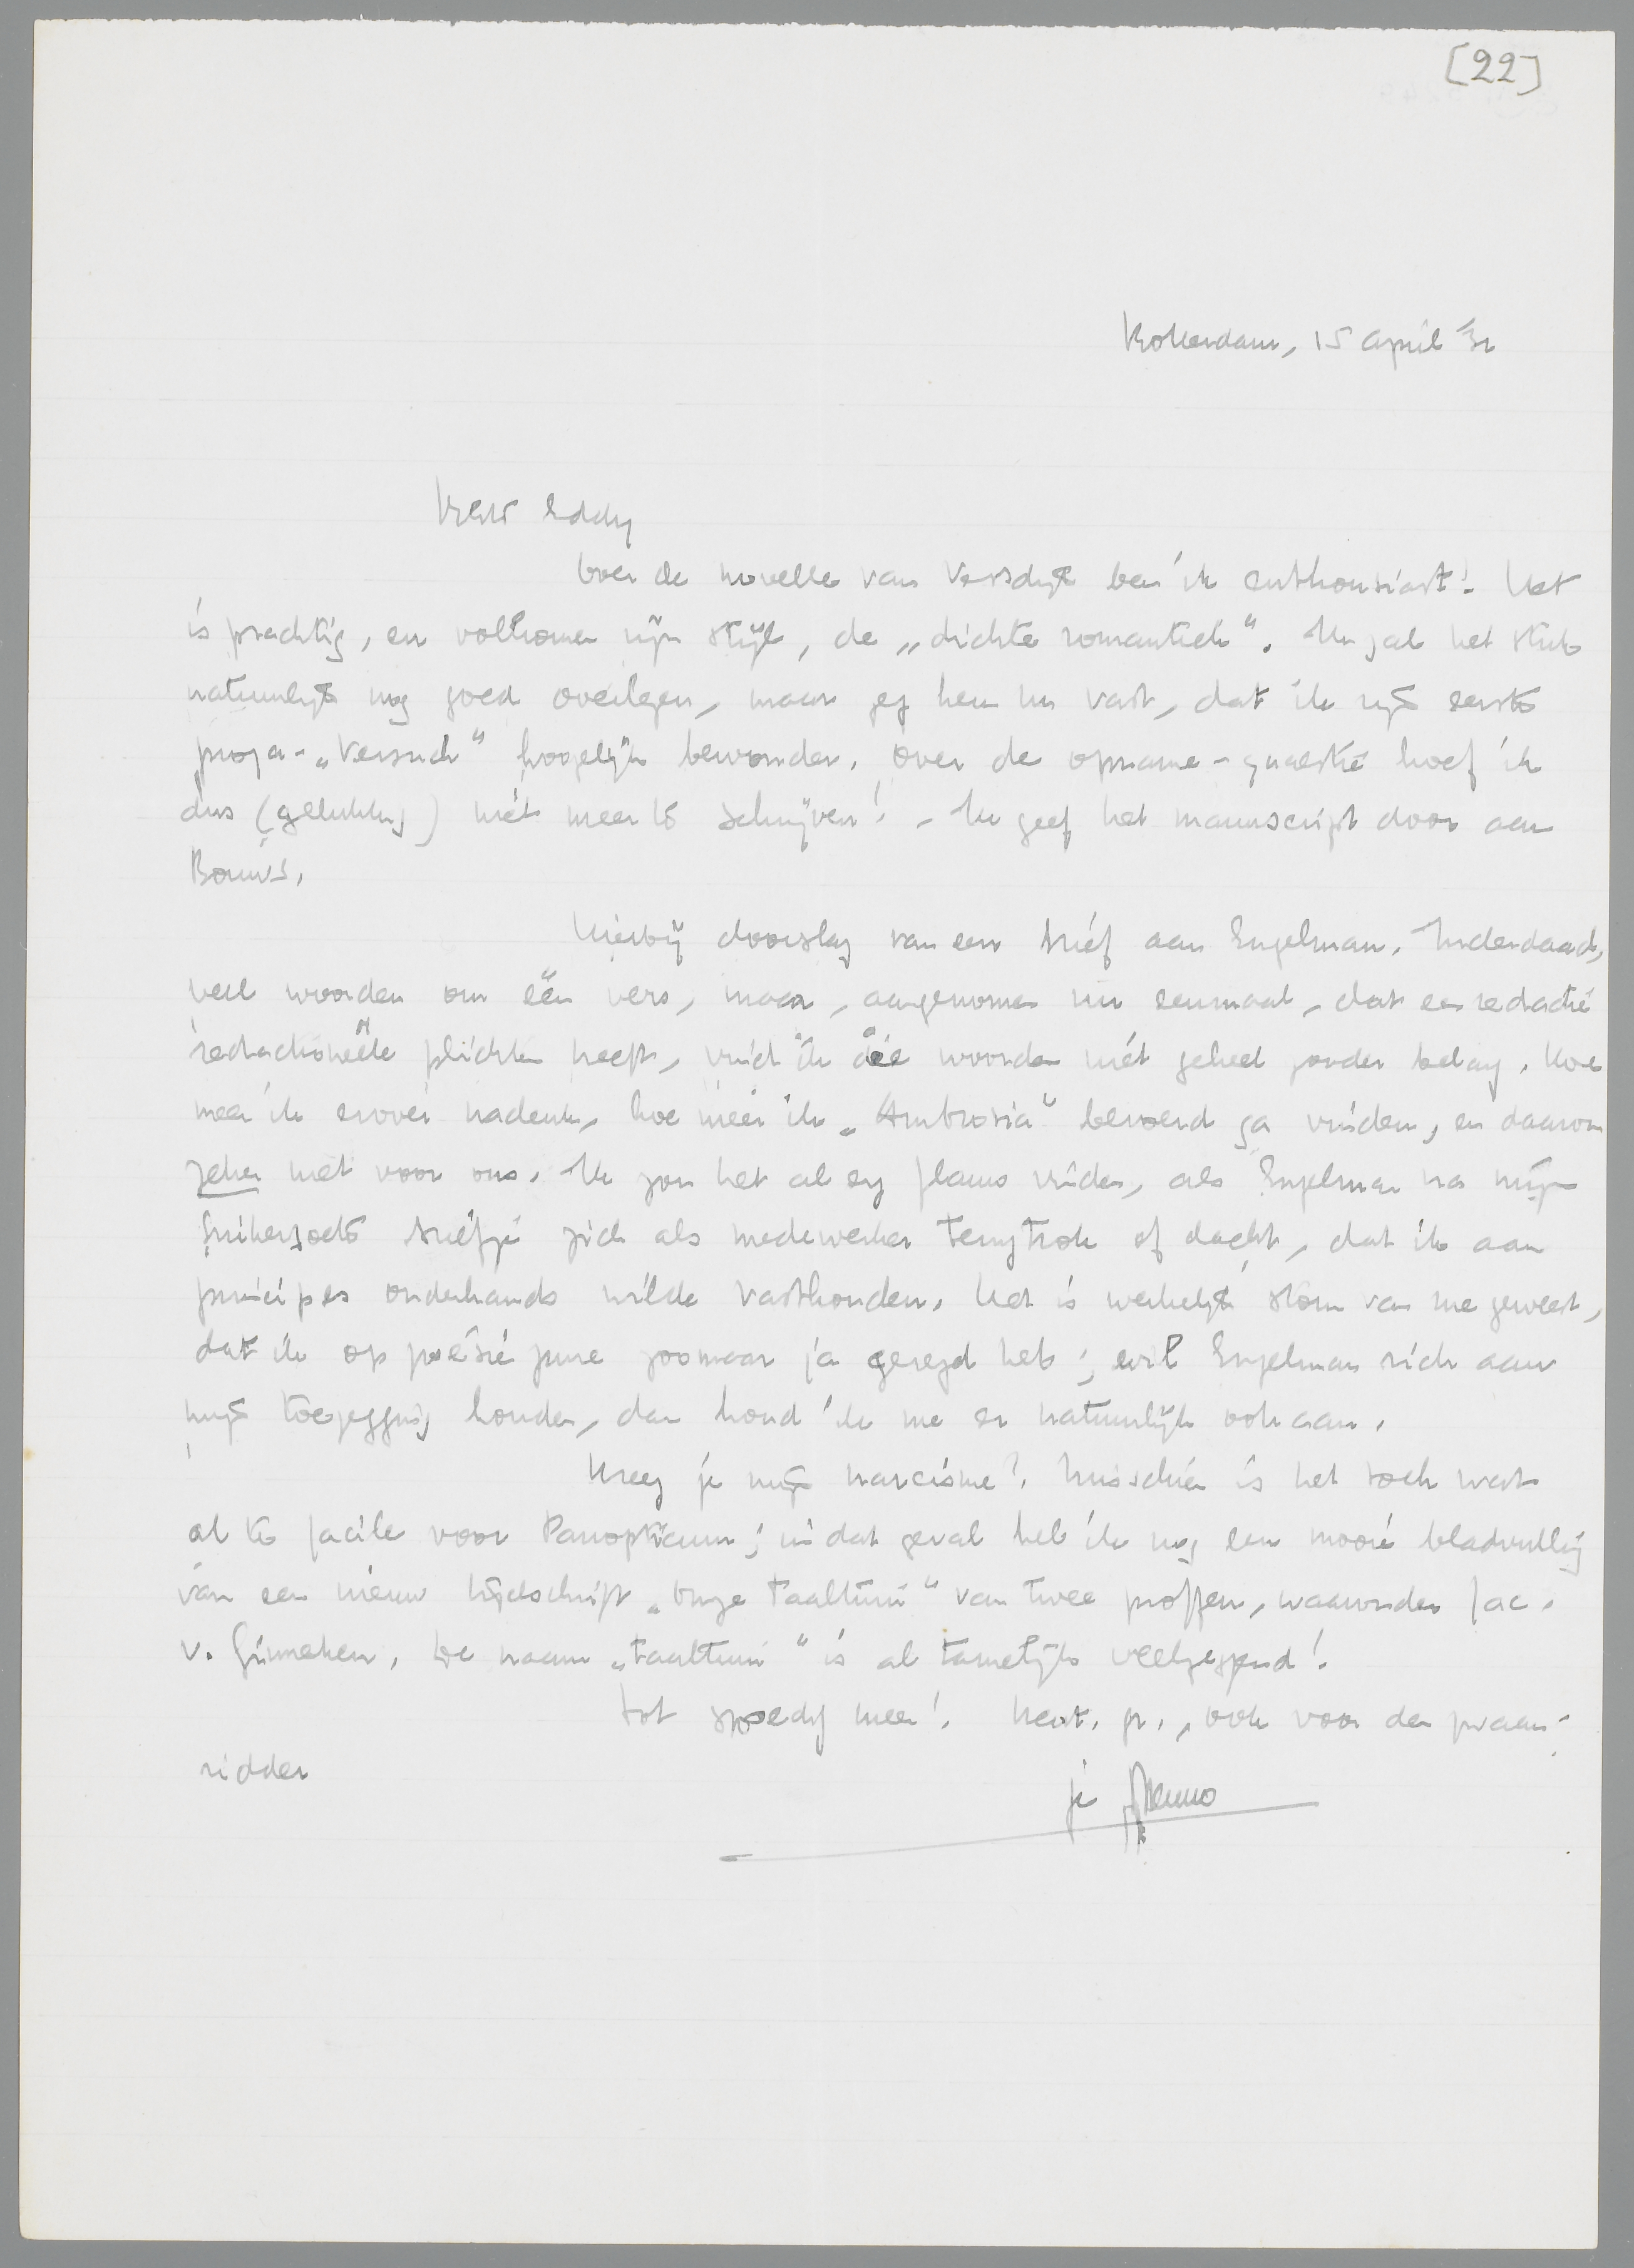 [22]
Rotterdam, 15 april '32
Beste Eddy
Over de novelle van Vestdijk ben ik enthousiast! Het
is prachtig, en volkomen zijn stijl, de „dichte romantiek". Ik zal het stuk
natuurlijk nog goed overlezen, maar zeg hem nu vast, dat ik zijn eerste
proza-„Versuch" hoogelijk bewonder. Over de opname-quaestie hoef ik
dus (gelukkig) niet meer te schrijven! - Ik geef het manuscript door aan
Bouws.
Hierbij doorslag van een brief aan Engelman. Inderdaad,
veel woorden om één vers, maar, aangenomen nu eenmaal, dat een redactie
redactioneele plichten heeft, vind ik die woorden niet geheel zonder belang. Hoe
meer ik erover nadenk, hoe meer ik „Ambrosia" beroerd ga vinden, en daarom
zeker niet voor ons. Ik zou het al erg flauw vinden, als Engelman na mijn
suikerzoete briefje zich als medewerker terugtrok of dacht, dat ik aan
principes onderhands wilde vasthouden. Het is werkelijk stom van me geweest,
dat ik op poésie pure zoomaar ja gezegd heb; wil Engelman zich aan
mijn toezegging houden, dan houd ik me er natuurlijk ook aan.
Kreeg je mijn narcisme? Misschien is het toch wat
al te facile voor Panopticum; in dat geval heb ik nog een mooie bladvulling
van een nieuw tijdschrift „Onze Taaltuin" van twee proffen, waaronder Jac.
v. Ginneken. De naam „taaltuin" is al tamelijk veelzeggend!
Tot spoedig meer! Hart. gr., ook voor den graan-
ridder
je Menno